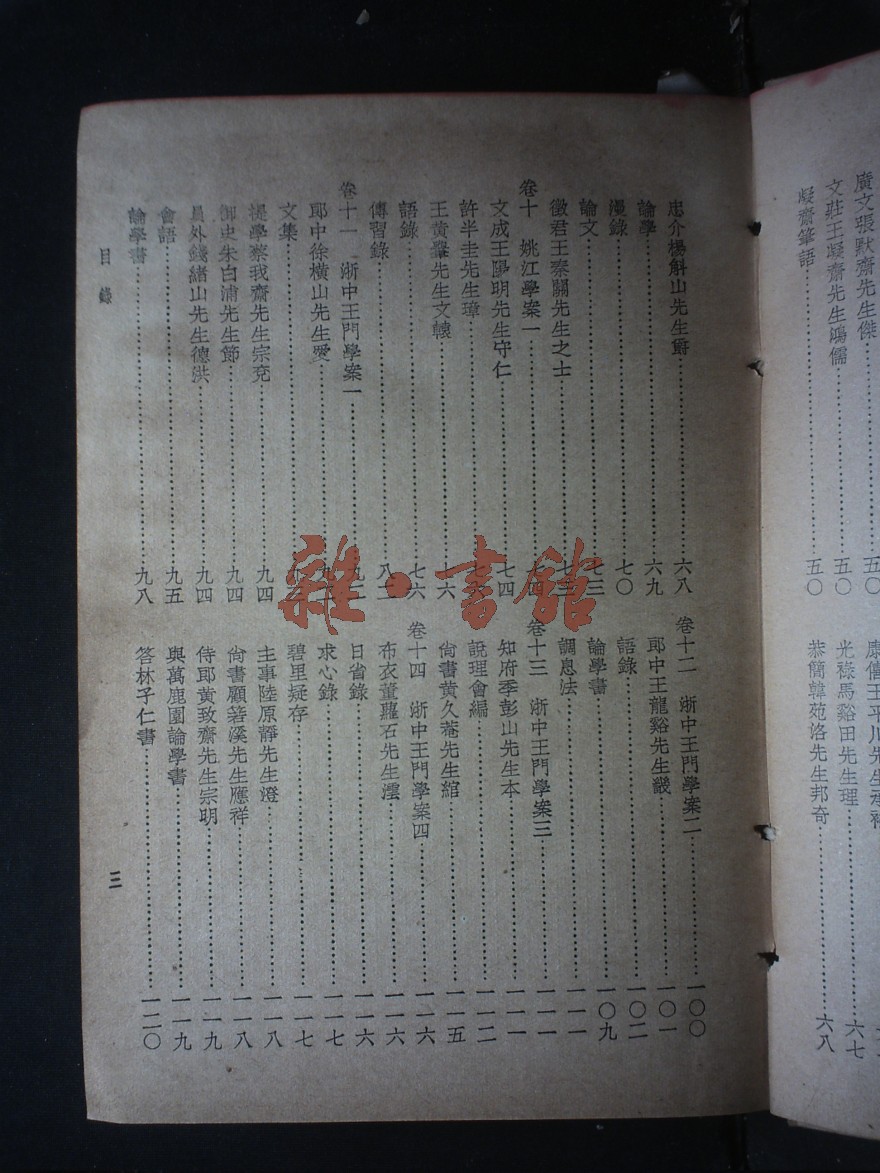 廣文張默齋先生傑……五〇
文莊王凝齋先生鴻儒……五〇
凝齋筆語……五〇
光祿馬谿田先生理……六七
恭簡韓苑洛先生邦奇……六八
忠介楊斛山先生爵……六八
論學……六九
漫錄……七〇
論文……七三
徵君王秦關先生之士……七三
卷十　姚江學案一……七四
文成王陽明先生守仁……七四
許半圭先生璋……七六
王黃轝先生文轅……七六
語錄……七六
傳習錄……八二
卷十一　浙中王門學案一
郎中徐橫山先生愛
文集
提學蔡我齋先生宗兗……九四
御史朱白浦先生節……九四
員外錢緒山先生德洪……九四
會語……九五
論學書……九八
卷十二　浙中王門學案二……一〇〇
郎中王龍谿先生畿……一〇一
語錄……一〇二
論學書……一〇九
調息法……一一一
卷十三　浙中王門學案三……一一一
知府季彭山先生本……一一一
說理會編……一一二
尙書黃久菴先生綰……一一五
卷十四　浙中王門學案四……一一六
布衣董蘿石先生澐……一一六
日省錄……一一六
求心錄……一一七
碧里疑存……一一七
主事陸原靜先生澄……一一八
尙書顧箬溪先生應祥……一一八
侍郎黃致齋先生宗明……一一九
與萬鹿園論學書……一一九
答林子仁書……一二〇
目錄
三
雜·書館